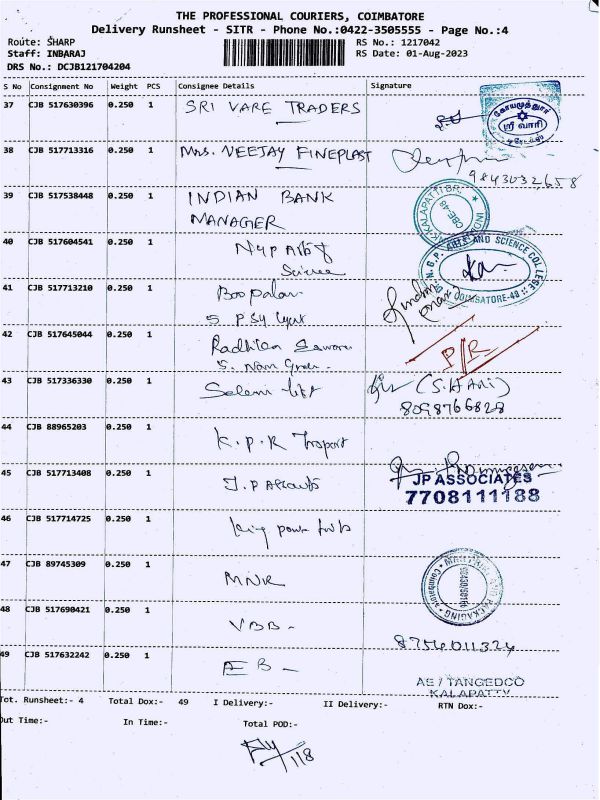 THE PROFESSIONAL COURIERS, COIMBATORE
Delivery Runsheet - SITR - Phone No.:0422-3505555 - Page No.:4
Route: SHARP
Staff: INBARAJ
DRS No.: DCJB121704204
RS No.: 1217042
RS Date: 01-Aug-2023
S No Consignment No Weight PCS Consignee Details Signature
37 CJB 517630396 0.250 1 SRI VARE TRADERS
கோயமுத்தூர்
ஸ்ரீ வாரி
38 CJB 517713316 0.250 1 Mrs. VEEJAY FINEPLAST
9843032658
39 CJB 517538448 0.250 1 INDIAN BANK
MANAGER
KALAPATTI BR.
CBE-48
40 CJB 517604541 0.250 1
Science
ARTS AND SCIENCE COLLEGE
COIMBATORE-49
41 CJB 517713210 0.250 1 Boopalan
42 CJB 517645044 0.250 1 Radhika
P/R
43 CJB 517336330 0.250 1 Selem
(S.HARI)
8098766828
44 CJB 88965203 0.250 1 K.P.R
45 CJB 517713408 0.250 1 J.P
JP ASSOCIATES
7708111188
46 CJB 517714725 0.250 1 King power
47 CJB 89745309 0.250 1 MNR
AND PACKAGING
Coimbatore
48 CJB 517690421 0.250 1 VBB -
8754011324
49 CJB 517632242 0.250 1 EB -
AE / TANGEDCO
KALAPATTY
Tot. Runsheet:- 4 Total Dox:- 49 I Delivery:- II Delivery:- RTN Dox:-
Out Time:- In Time:- Total POD:-
1/8